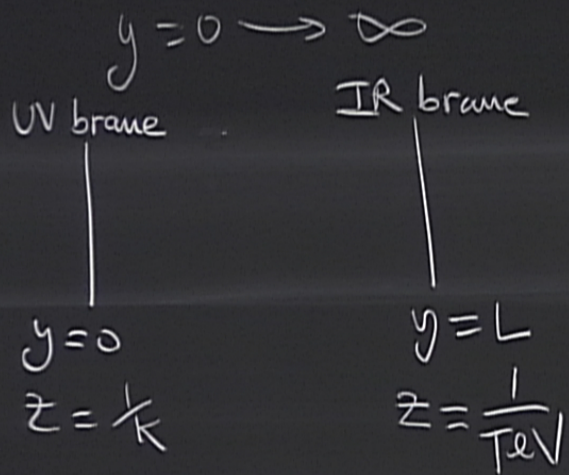 y=0 → ∞
UV brane
IR brane
y=0
y=L
z=1/k
z=1/TeV